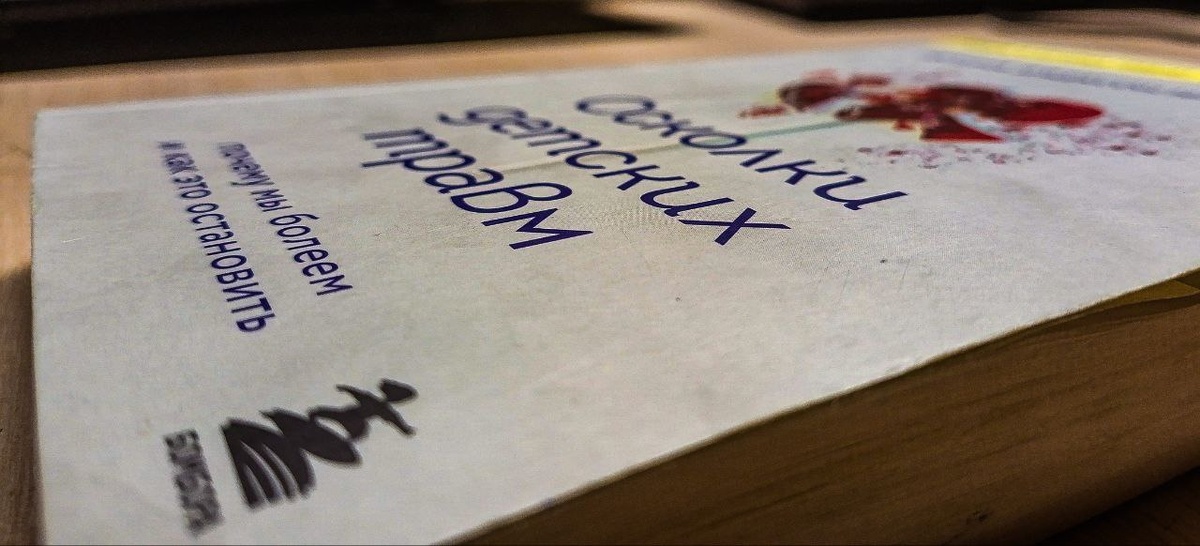 Осколки
детских
травм
почему мы болеем
и как это остановить
БОМБОРА